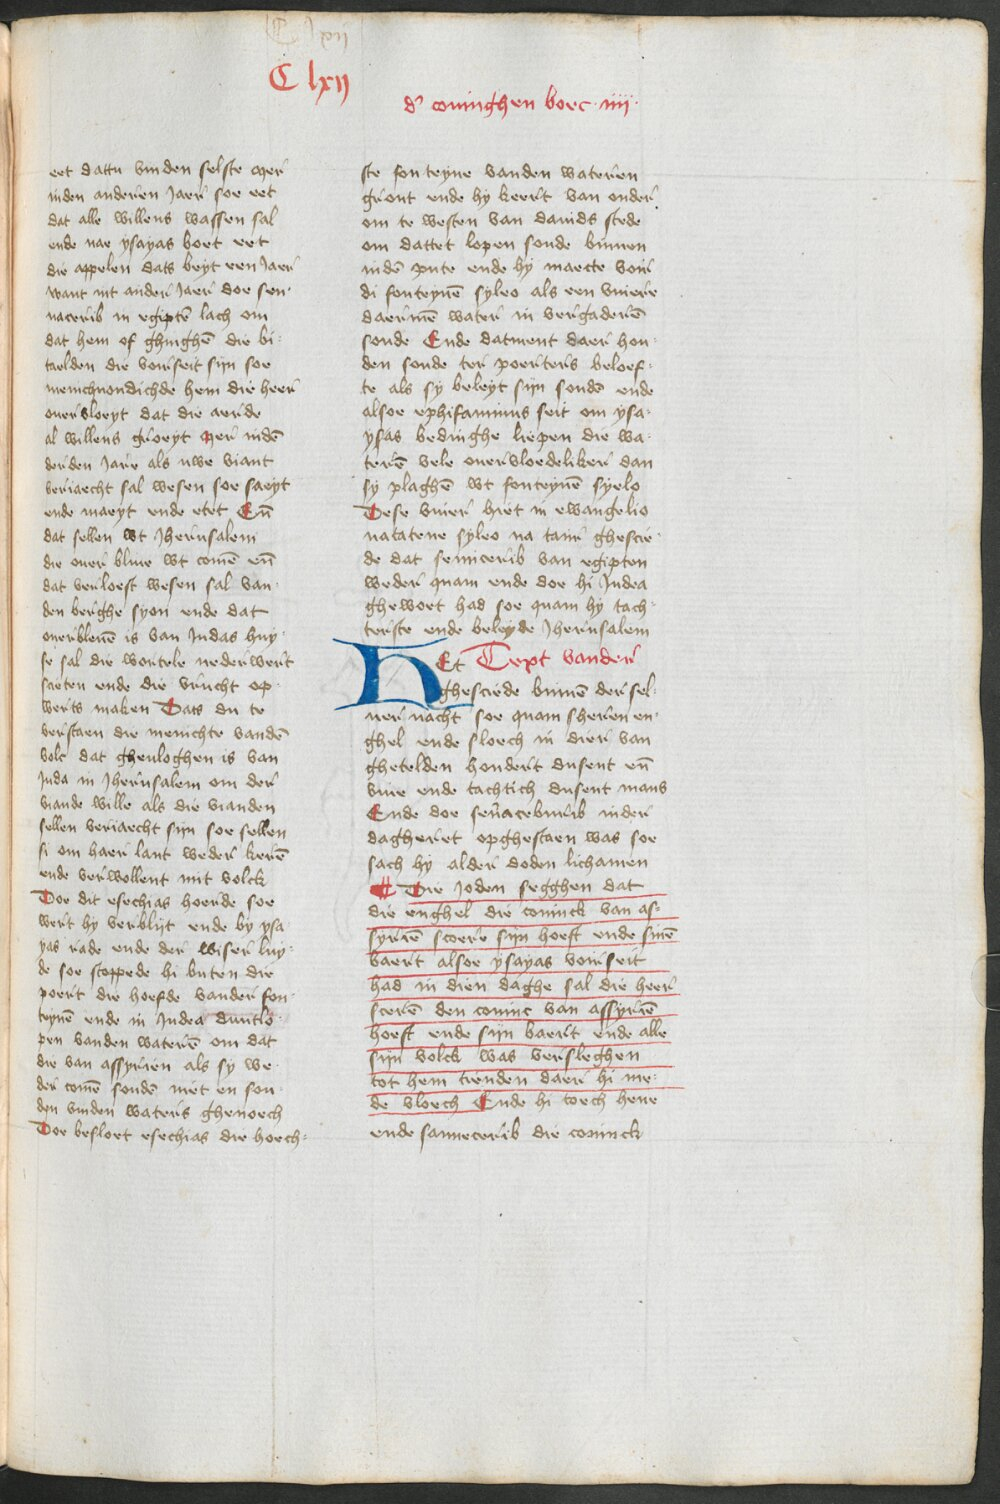 C lxij
C lxij
d' coninghen boec · iiii ·
eet dattu vinden selste Mer
inden anderen Jaer soe eet
dat alle willens wassen sal
ende nae ysayas boet eet
die appelen dats beyt een Jaer
want int ander Jaer doe sen-
nacerib in egiptē lach om
dat hem of ghinghē die bi-
taelden die voirseit sijn soe
menichuondichde hem die heer
oueruloeyt dat die aerde
al willens groeyt Mer indē
derden Jare als uwe viant
veriaecht sal wesen soe saeyt
ende maeyt ende etet Eñ
dat sellen wt Jherusalem
die ouer bliue wt comē eñ
dat verloest wesen sal van-
den berghe syon ende dat
ouerbleuē is van Judas huy-
se sal die wortele nederwert
scieten ende die vrucht op-
werts maken Dats du te
verstaen die menichte vandē
volc dat ghevloghen is van
Juda in Jherusalem om der
viande wille als die vianden
sellen veriaecht sijn soe sellen
si om haer lant weder kerē
ende verwollent mit volck
Doe dit esechias hoerde soe
wert hy verblijt ende by ysa
yas rade ende der wiser luy-
de soe stoppede hi buten die
poert die hoefde vander fon-
teynē ende in Judea duntlo-
pen vanden waterē om dat
die van assyrien als sy we-
der comē soudē niet en sou-
den vinden waters ghenoech
Doe besloet esechias die hoech-
ste fonteyne vanden wateren
gront ende hy keert van onder
om te westen van dauids stede
om dattet lopen soude binnen
indē pute ende hy maecte voir
di fonteynē syleo als een viuere
daermē water in vergaderē
soude Ende datment daer hou-
den soude ter poerters beloef-
te als sy beleyt sijn soudē ende
alsoe ephifaninus seit om ysa-
yas bedinghe liepen die wa-
terē vele oueruloedeliker dan
sy plaghē wt fonteynē syelo
Dese viuer hiet in ewangelio
natatene syleo na tair ghescie-
de dat senicerib van egipten
weder quam ende doe hi Judea
ghewoet had soe quam hy tach-
terste ende beleyde Jherusalem
HEt Text vander
ghesciede binnē der sel-
uer nacht soe quam sheren en-
ghel ende sloech in dier van
ghetelden hondert dusent eñ
viue ende tachtich dusent mans
Ende doe sen̄aceburib inder
dagheret opghestaen was soe
sach hy alder doden lichamen
¶ Die Joden segghen dat
die enghel die coninck van as-
syriē scoere sijn hoeft ende sinē
baert alsoe ysayas voirseit
had in dien daghe sal die heer
scerē den coninc van assyriē
hoeft ende sijn baert ende alle
sijn volck was versleghen
tot hem tienden daer hi me-
de vloech Ende hi toech hene
ende sannecerib die coninck